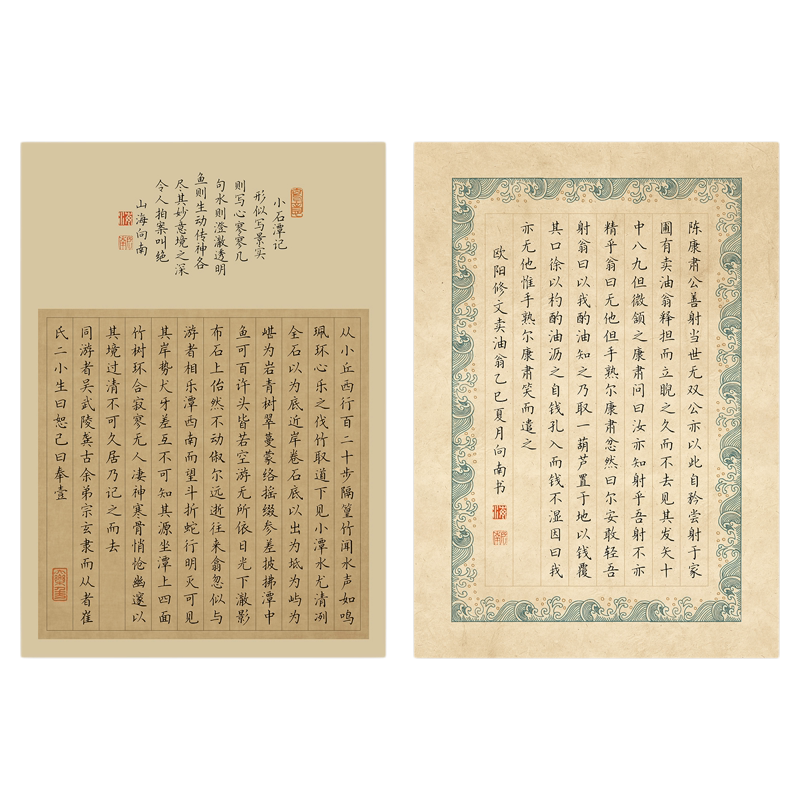 小石潭记
形似写景实
则写心寥寥几
句水则澄澈透明
鱼则生动传神各
尽其妙意境之深
令人拍案叫绝
山海向南
从小丘西行百二十步隔篁竹闻水声如鸣
珮环心乐之伐竹取道下见小潭水尤清冽
全石以为底近岸卷石底以出为坻为屿为
嵁为岩青树翠蔓蒙络摇缀参差披拂潭中
鱼可百许头皆若空游无所依日光下澈影
布石上佁然不动俶尔远逝往来翕忽似与
游者相乐潭西南而望斗折蛇行明灭可见
其岸势犬牙差互不可知其源坐潭上四面
竹树环合寂寥无人凄神寒骨悄怆幽邃以
其境过清不可久居乃记之而去
同游者吴武陵龚古余弟宗玄隶而从者崔
氏二小生曰恕己曰奉壹
陈康肃公善射当世无双公亦以此自矜尝射于家
圃有卖油翁释担而立睨之久而不去见其发矢十
中八九但微颔之康肃问曰汝亦知射乎吾射不亦
精乎翁曰无他但手熟尔康肃忿然曰尔安敢轻吾
射翁曰以我酌油知之乃取一葫芦置于地以钱覆
其口徐以杓酌油沥之自钱孔入而钱不湿因曰我
亦无他惟手熟尔康肃笑而遣之
欧阳修文卖油翁乙巳夏月向南书